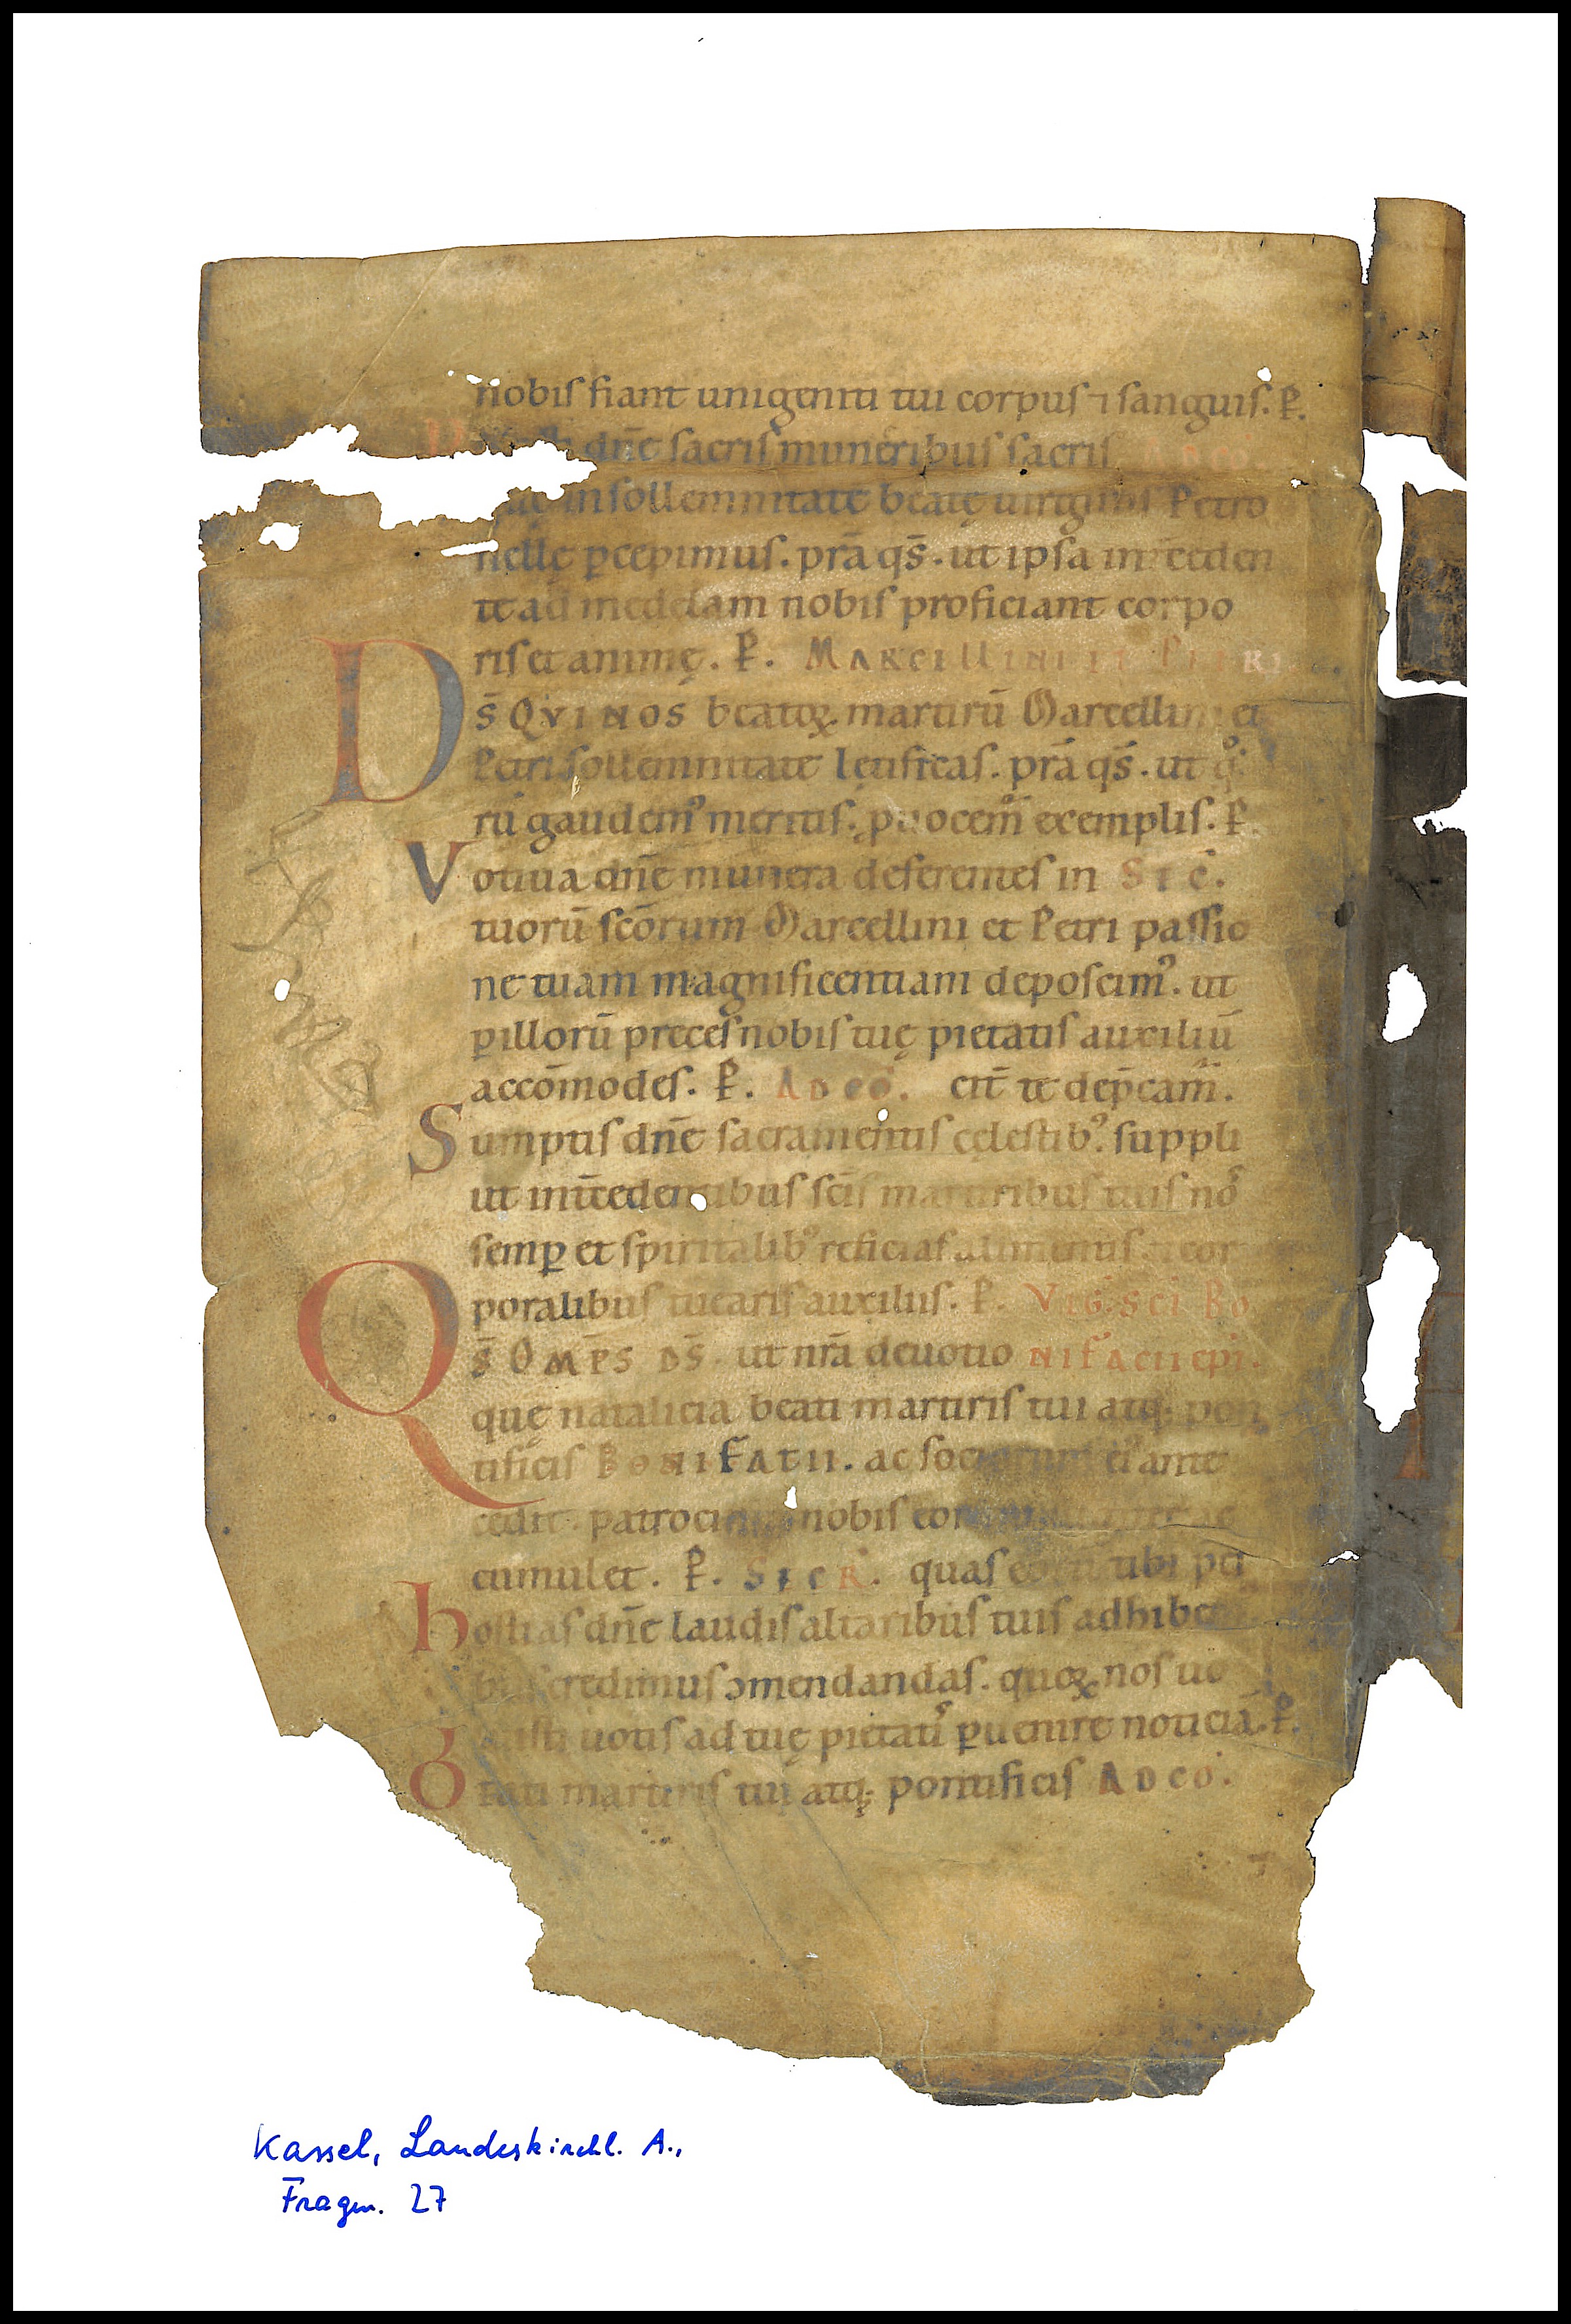 nobis fiant unigeniti tui corpus ⁊ sanguis. P̄.
dn̄e sacris muneribus sacris ADCO.
in sollemnitate beatę uirginis Petro
nellę ꝑcepimus. p̄ra q̄s. ut ipsa int̄ceden
te ad medelam nobis proficiant corpo
ris et animę. P̄. MARCELLINI ET PETRI.
DS̄ QVI NOS beatoꝝ martirū Marcellini et
Petri sollemnitate lętificas. p̄ra q̄s. ut qͦ
rū gaudemꝰ meritis. exemplis. P̄.
Votiua dn̄e munera deferentes in SEC̄.
tuorū scōrum Marcellini et Petri passio
ne tuam magnificentiam deposcimꝰ. ut
ꝑ illorū preces nobis tuę pietatis auxiliū
accōmodes. P̄. ADCŌ. cit̄ te dep̄camͥ.
Sumptis dn̄e sacramentis cęlestibꝰ. suppli
ut int̄cedentibus sc̄is martiribus tuis nōͦ
semꝑ et spiritalibꝰ reficias alimentis ⁊ cor
poralibus tuearis auxiliis. P̄. VIG. SCI BO
QS̄ OMP̄S DS̄. ut nr̄a deuotio NIFACII epi.
quę natalicia beati martiris tui atq; pon
tificis BONIFATII. ac sociorum eiꝰ ante
cedit. patrocinia nobis eorum
cumulet. P̄. SECR. quas eorum tibi p̄ci
hostias dn̄e laudis altaribus tuis adhibe
bus credimus ɔmendandas. quoꝝ nos uo
luisti uotis ad tuę pietatis ꝑuenire noticiā. P̄.
martiris tui atq; pontificis ADCO.
Kassel, Landeskirchl. A.,
Fragm. 27